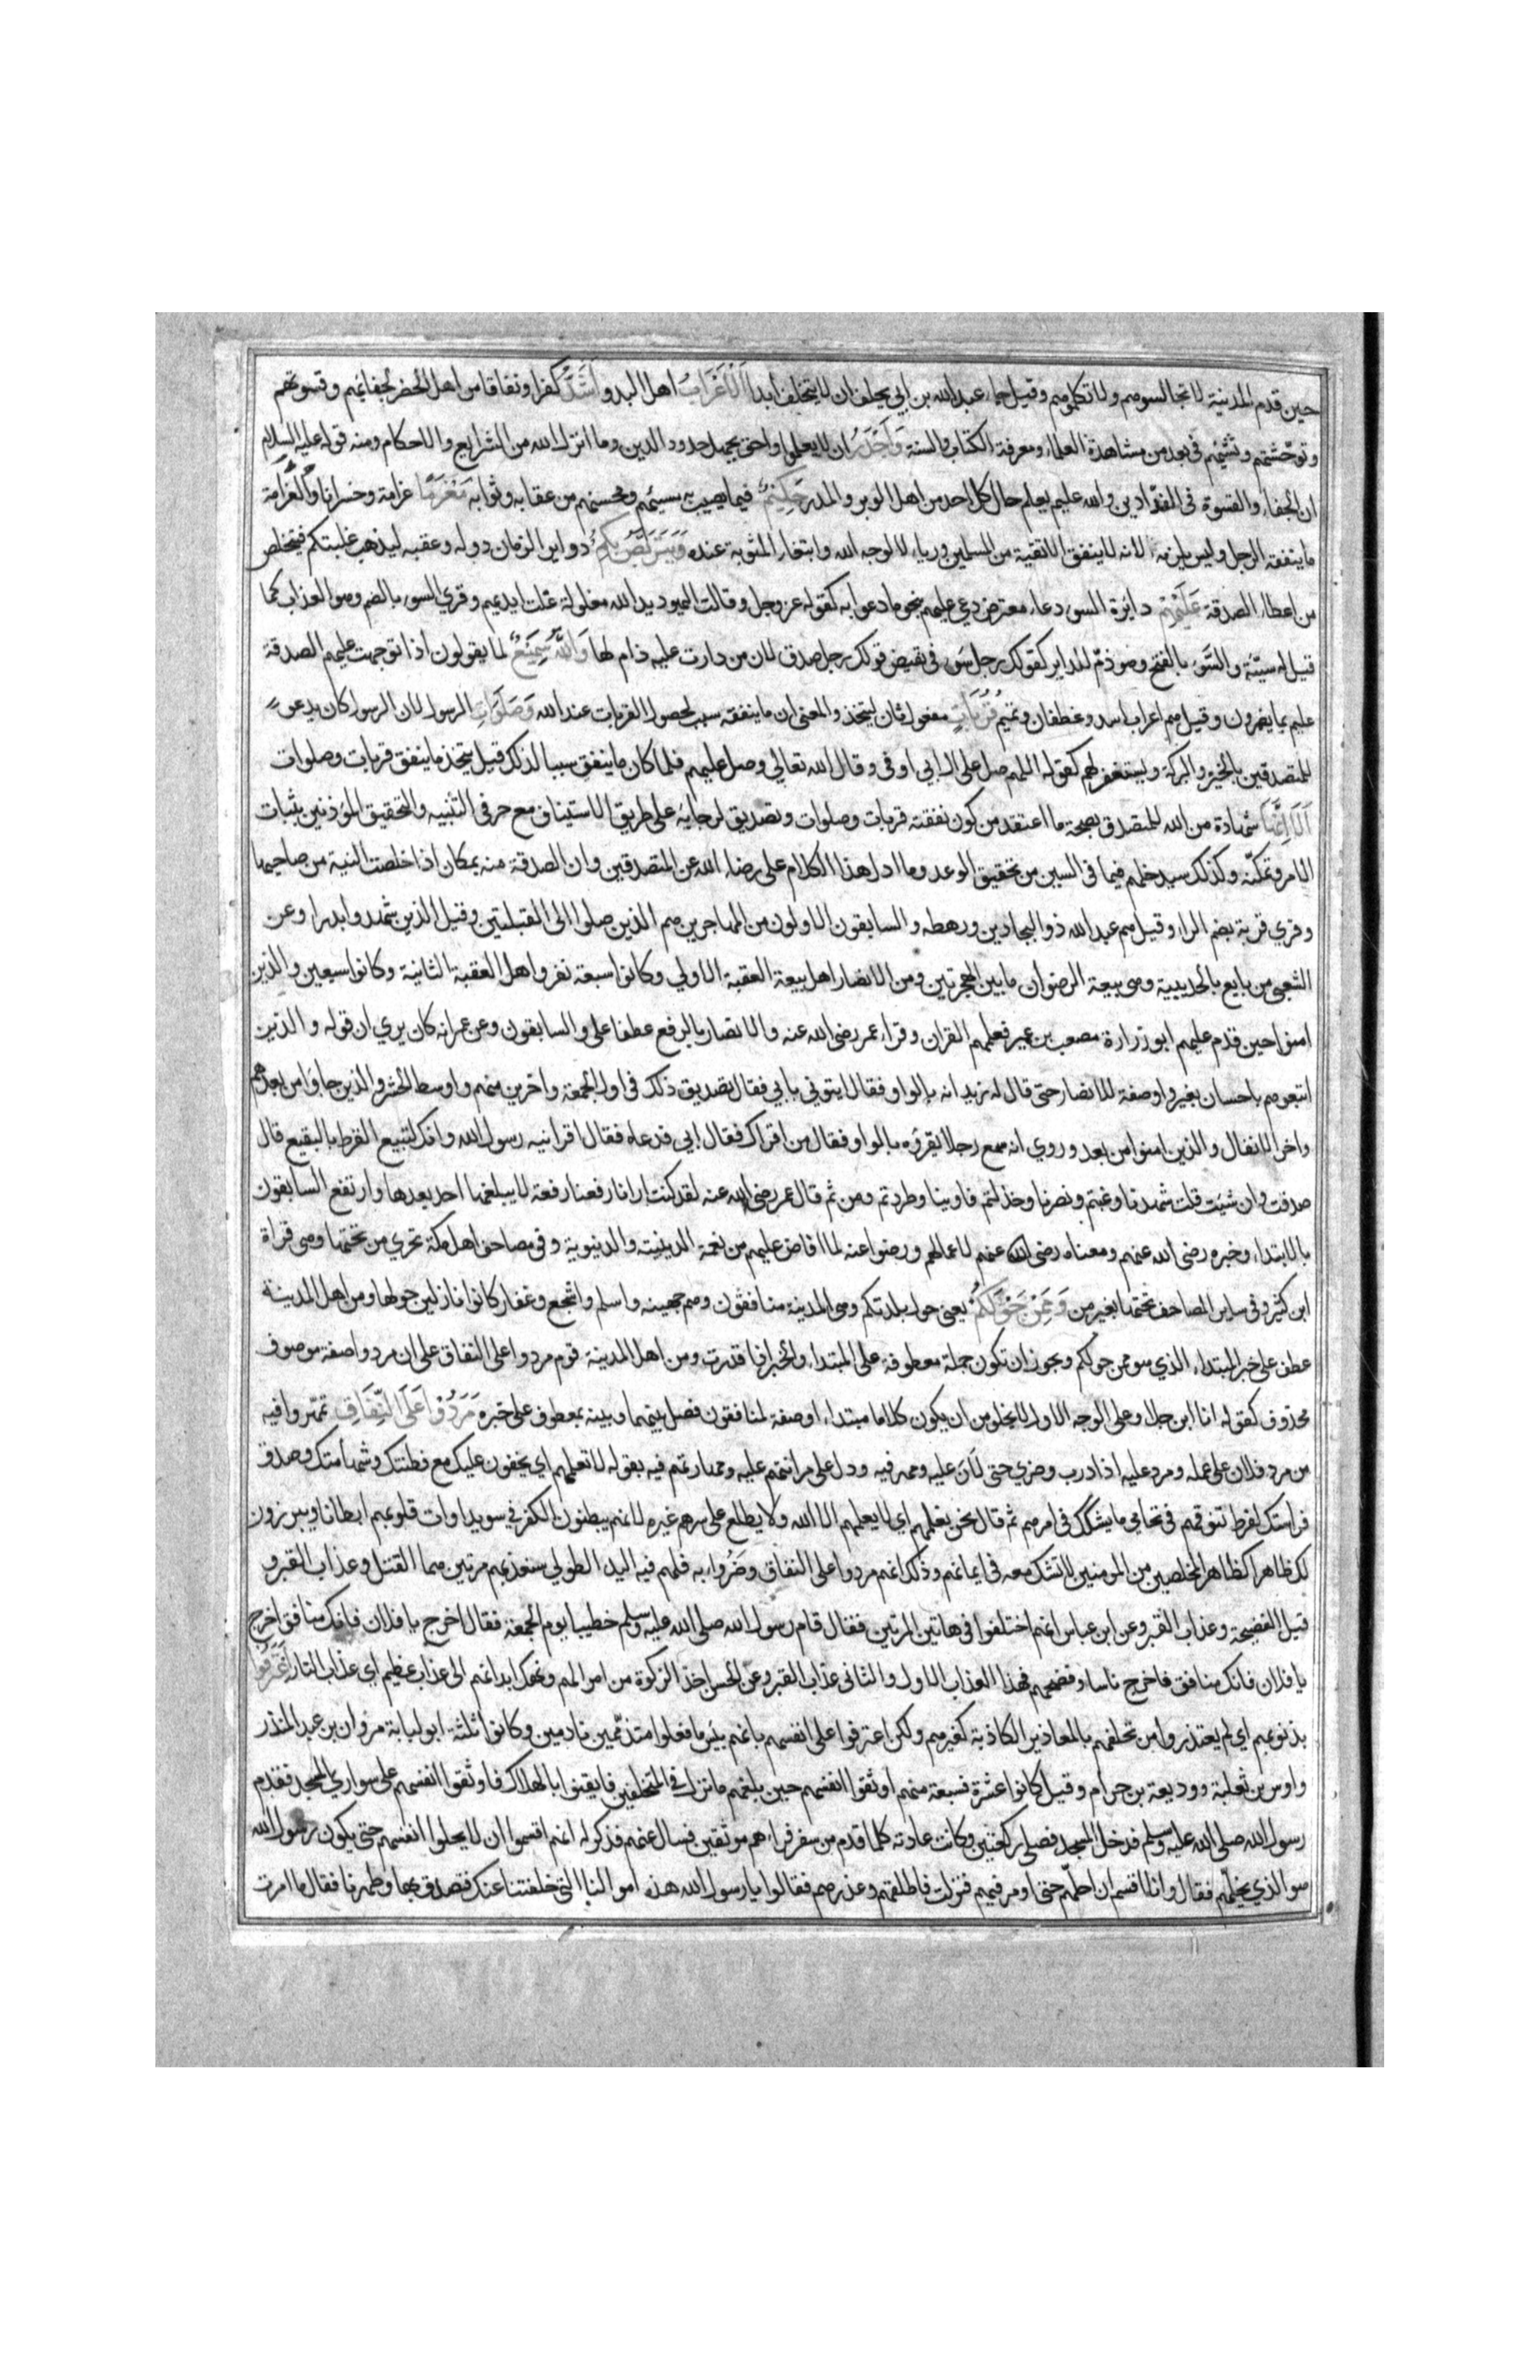 حين قدم المدينة لا تجالسوهم ولا تكلموهم وقيل جاء عبدالله بن ابي يحلف ان لا يتخلف ابدا اَلْاَعْرَابُ اهل البدو اَشَدُّ كفرا ونفاقا من اهل الحضر لجفائهم وقسوتهم
وتوحّشهم ونشئهم في بعد من مشاهدة العلماء ومعرفة الكتاب والسنة وَاَجْدَرُ ان لا يعلموا واحق بجهل حدود الدين وما انزل الله من الشرايع والاحكام ومنه قوله عليه السلام
ان الجفاء والقسوة في الفدّادين والله عليم يعلم حال كل احد من اهل الوبر والمدر حَكِيْمٌ فيما يصيب به مسيئهم ومحسنهم من عقابه وثوابه مَغْرَمًا غرامة وخسرانا والغرامة
ما ينفقه الرجل وليس يلزمه لانه لا ينفق الا تقية من المسلمين ورياء لا لوجه الله وابتغاء المثوبة عنده وَيَتَرَبَّصُ بِكُمُ دواير الزمان دوله وعقبه ليذهب غلبتكم فيتخلص
من اعطاء الصدقة عَلَيْهِمْ دايرة السوء دعاء معترض دعي عليهم بنحو ما دعوا به كقوله عز وجل وقالت اليهود يد الله مغلولة غلت ايديهم وقري السوء بالضم وهو العذاب كما
قيل له سيئة والسَّوء بالفتح وهو ذمّ للداير كقولك رجل سَوء في نقيض قولك رجل صدق لان من دارت عليه ذام لها وَاللّٰهُ سَمِيْعٌ لما يقولون اذا توجهت عليهم الصدقة
عليم بما يضمرون وقيل هم اعراب اسد وغطفان وتميم قُرُبَاتٍ مفعول ثان ليتخذ والمعنى ان ما ينفقه سبب لحصول القربات عند الله وَصَلَوَاتِ الرسول لان الرسول كان يدعو
للمتصدقين بالخير والبركة ويستغفر لهم كقوله اللهم صل على ال ابي اوفى وقال الله تعالي وصل عليهم فلما كان ما ينفق سببا لذلك قيل يتخذ ما ينفق قربات وصلوات
اَلَا اِنَّهَا شهادة من الله للمتصدق بصحة ما اعتقد من كون نفقته قربات وصلوات وتصديق لرجايه على طريق الاستيناف مع حرفي التنبيه والتحقيق المؤذنين بثبات
الامر وتمكّنه وكذلك سيدخلهم فيها في السين من تحقيق الوعد وما ادل هذا الكلام على رضاء الله عن المتصدقين وان الصدقة منه بمكان اذا خلصت النية من صاحبها
وقري قربة بضم الراء وقيل هم عبد الله ذو البجادين ورهطه والسابقون الاولون من المهاجرين هم الذين صلوا الى القبلتين وقيل الذين شهدوا بدرا وعن
الشعبي من بايع بالحديبية وهي بيعة الرضوان ما بين الهجرتين ومن الانصار اهل بيعة العقبة الاولي وكانوا سبعة نفر واهل العقبة الثانية وكانوا سبعين والذين
امنوا حين قدم عليهم ابو زرارة مصعب بن عمير فعلمهم القران وقراء عمر رضي الله عنه والانصار بالرفع عطفا على والسابقون وعن عمر انه كان يري ان قوله والذين
اتبعوهم باحسان بغير واو صفة للانصار حتى قال له زيد انه بالواو فقال ايتوني بابي فقال تصديق ذلك في اول الجمعة واخرين منهم واوسط الحشر والذين جاؤا من بعدهم
واخر الانفال والذين امنوا من بعد وروي انه سمع رجلا يقرؤه بالواو فقال من اقراك فقال ابي فدعاه فقال اقرانيه رسول الله وانك لتبيع القرظ بالبقيع قال
صدقت وان شئت قلت شهدنا وغبتم ونصرنا وخذلتم واوينا وطردتم ومن ثم قال عمر رضي الله عنه لقد كنت ارانا رفعنا رفعة لا يبلغها احد بعدها وارتفع السابقون
بالابتداء وخبره رضي الله عنهم ومعناه رضي الله عنهم لاعمالهم ورضوا عنه لما افاض عليهم من نعمة الدينية والدنيوية وفي مصاحف اهل مكة تجري من تحتها وهي قراة
ابن كثير وفي ساير المصاحف تحتها بغير من وَمِمَّنْ حَوْلَكُمْ يعني حول بلدتكم وهي المدينة منافقون وهم جهينه واسلم واشجع وغفار كانوا نازلين حولها ومن اهل المدينة
عطف على خبر المبتداء الذي هو ممن حولكم ويجوز ان تكون جملة معطوفة على المبتداء والخبر اذا قدرت ومن اهل المدينة قوم مردوا على النفاق على ان مردوا صفة موصوف
محذوف كقوله انا ابن جلا وعلى الوجه الاول لا يخلو من ان يكون كلاما مبتداء او صفة لمنافقون فصل بينها وبينه بمعطوف على خبره مَرَدُوْا عَلَى النِّفَاقِ تمهّروا فيه
من مرد فلان على عمله ومرد عليه اذا درب وضري حتى لان عليه ومهر فيه ودل على مرانتهم عليه ومهارتهم فيه بقوله لا تعلمهم اي يخفون عليك مع فطنتك وشهامتك وصدق
فراستك لفرط تنوقهم في تحامي ما يشكك في امرهم ثم قال نحن نعلمهم اي لا يعلمهم الا الله ولا يطلع على سرهم غيره لانهم يبطنون الكفر في سويداوات قلوبهم ابطانا ويبرزون
لك ظاهرا كظاهر المخلصين من المومنين لا تشك معه في ايمانهم وذلك انهم مردوا على النفاق وضروا به فلهم فيه اليد الطولي سنعذبهم مرتين هما القتل وعذاب القبر و
قيل الفضيحة وعذاب القبر وعن ابن عباس انهم اختلفوا في هاتين المرتين فقال قام رسول الله صلى الله عليه وسلم خطيبا يوم الجمعة فقال اخرج يا فلان فانك منافق اخرج
يا فلان فانك منافق فاخرج ناسا وفضحهم فهذا العذاب الاول والثاني عذاب القبر وعن الحسن اخذ الزكوة من اموالهم ونهك ابدانهم الى عذاب عظيم اي عذاب النار اعْتَرَفُوا
بذنوبهم اي لم يعتذروا من تخلفهم بالمعاذير الكاذبة كغيرهم ولكن اعترفوا على انفسهم بانهم بئس ما فعلوا متذممين نادمين وكانوا ثلثة ابو لبابة مروان بن عبد المنذر
واوس بن ثعلبة ووديعة بن حرام وقيل كانوا عشرة فسبعة منهم اوثقوا انفسهم حين بلغهم ما نزل في المتخلفين فايقنوا بالهلاك فاوثقوا انفسهم على سواري المسجد فقدم
رسول الله صلى الله عليه وسلم فدخل المسجد فصلى ركعتين وكانت عادته كلما قدم من سفر فراهم موثقين فسال عنهم فذكر له انهم اقسموا ان لا يحلوا انفسهم حتى يكون رسول الله
هو الذي يحلّهم فقال وانا اقسم ان احلّهم حتى اومر فيهم فنزلت فاطلقهم وعذرهم فقالوا يا رسول الله هذه اموالنا التي خلفتنا عنك فتصدق بها وطهرنا فقال ما امرت